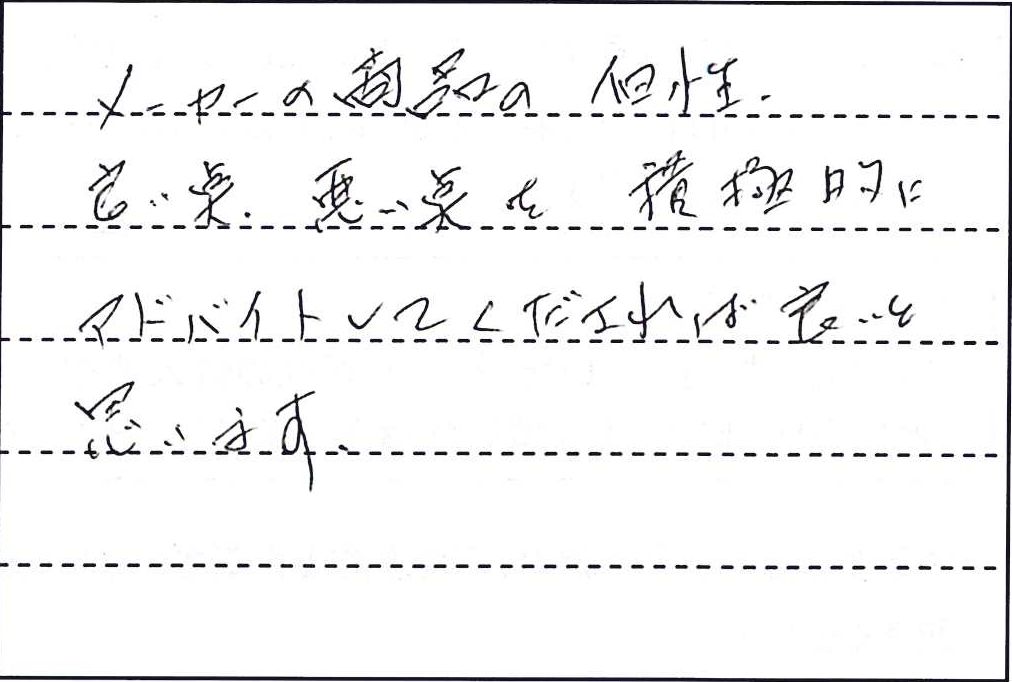 メーカーの商品の個性.
良い点.悪い点を 積極的に
アドバイトしてくだされば良いと
思います.